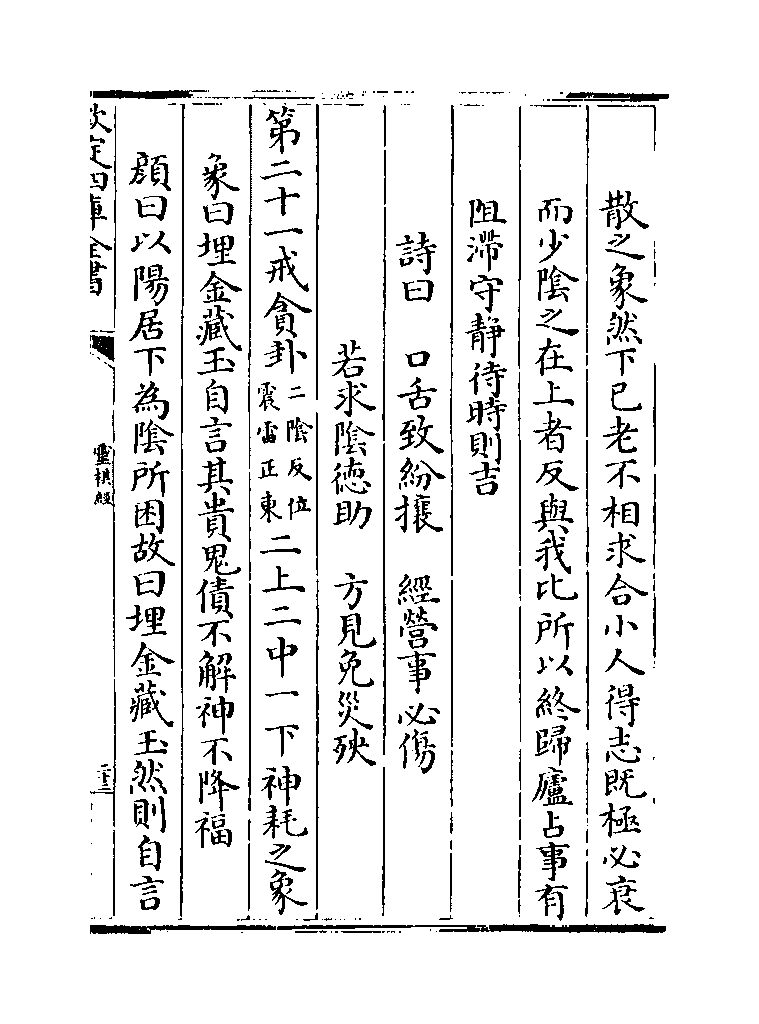 散之象然下已老不相求合小人得志既極必衰
而少陰之在上者反與我比所以終歸廬占事有
阻滯守靜待時則吉
詩曰　口舌致紛攘　經營事必傷
若求陰徳助　方見免災殃
第二十一戒貪卦二陰反位震雷正東二上二中一下神耗之象
象曰埋金藏玉自言其貴鬼債不解神不降福
顔曰以陽居下為陰所困故曰埋金藏玉然則自言
欽定四庫全書
靈棋經
二十三